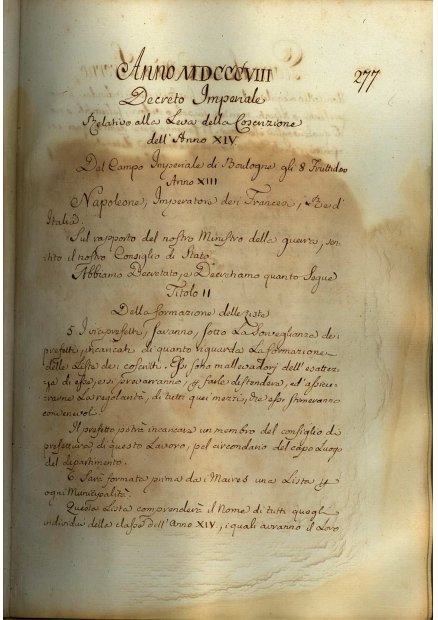 277
Anno MDCCCVIII
Decreto Imperiale
Relativo alla Leva della Coscrizione
dell'Anno XIV
Dal Campo Imperiale di Boulogne gli 8 Fruttidor
Anno XIII
Napoleone, Imperatore dei Francesi, Re d'
Italia
Sul rapporto del nostro Ministro della guerra, sen-
tito il nostro Consiglio di Stato
Abbiamo Decretato, e Decretiamo quanto Segue
Titolo II
Della formazione delle liste
5 I viceprefetti, saranno, sotto La Sorveglianza dei
prefetti, incaricati di quanto riguarda La formazione
delle Liste dei coscritti. Essi sono mallevadori dell'esattez-
za di esse, e si preveranno, per farle distendere, ed assicu-
rarne La regolarità, di tutti quei mezzi, che essi stimeranno
convenevol.
Il prefetto potrà incaricare un membro del consiglio di
prefettura di questo Lavoro, pel circondario del capo Luogo
del dipartimento.
6 Sarà formata prima da i Maires una Lista per
ogni Municipalità.
Questa Lista comprenderà il Nome di tutti quegli
individui della classe dell'Anno XIV, i quali avranno il Loro